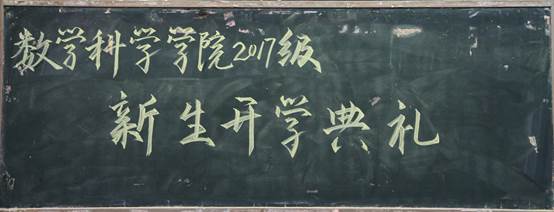 数学科学学院2017级
新生开学典礼